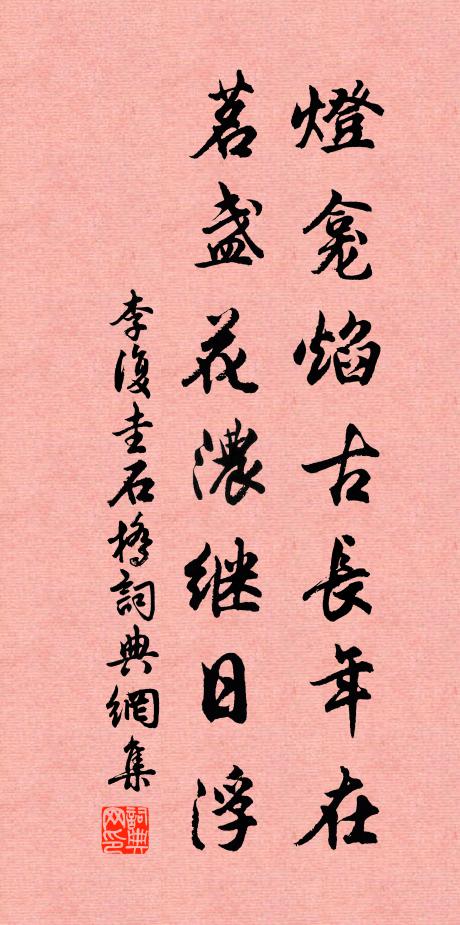 燈龛焰古長年在
茗盏花濃继日浮
李復圭石橋詞典網集
詞典网印